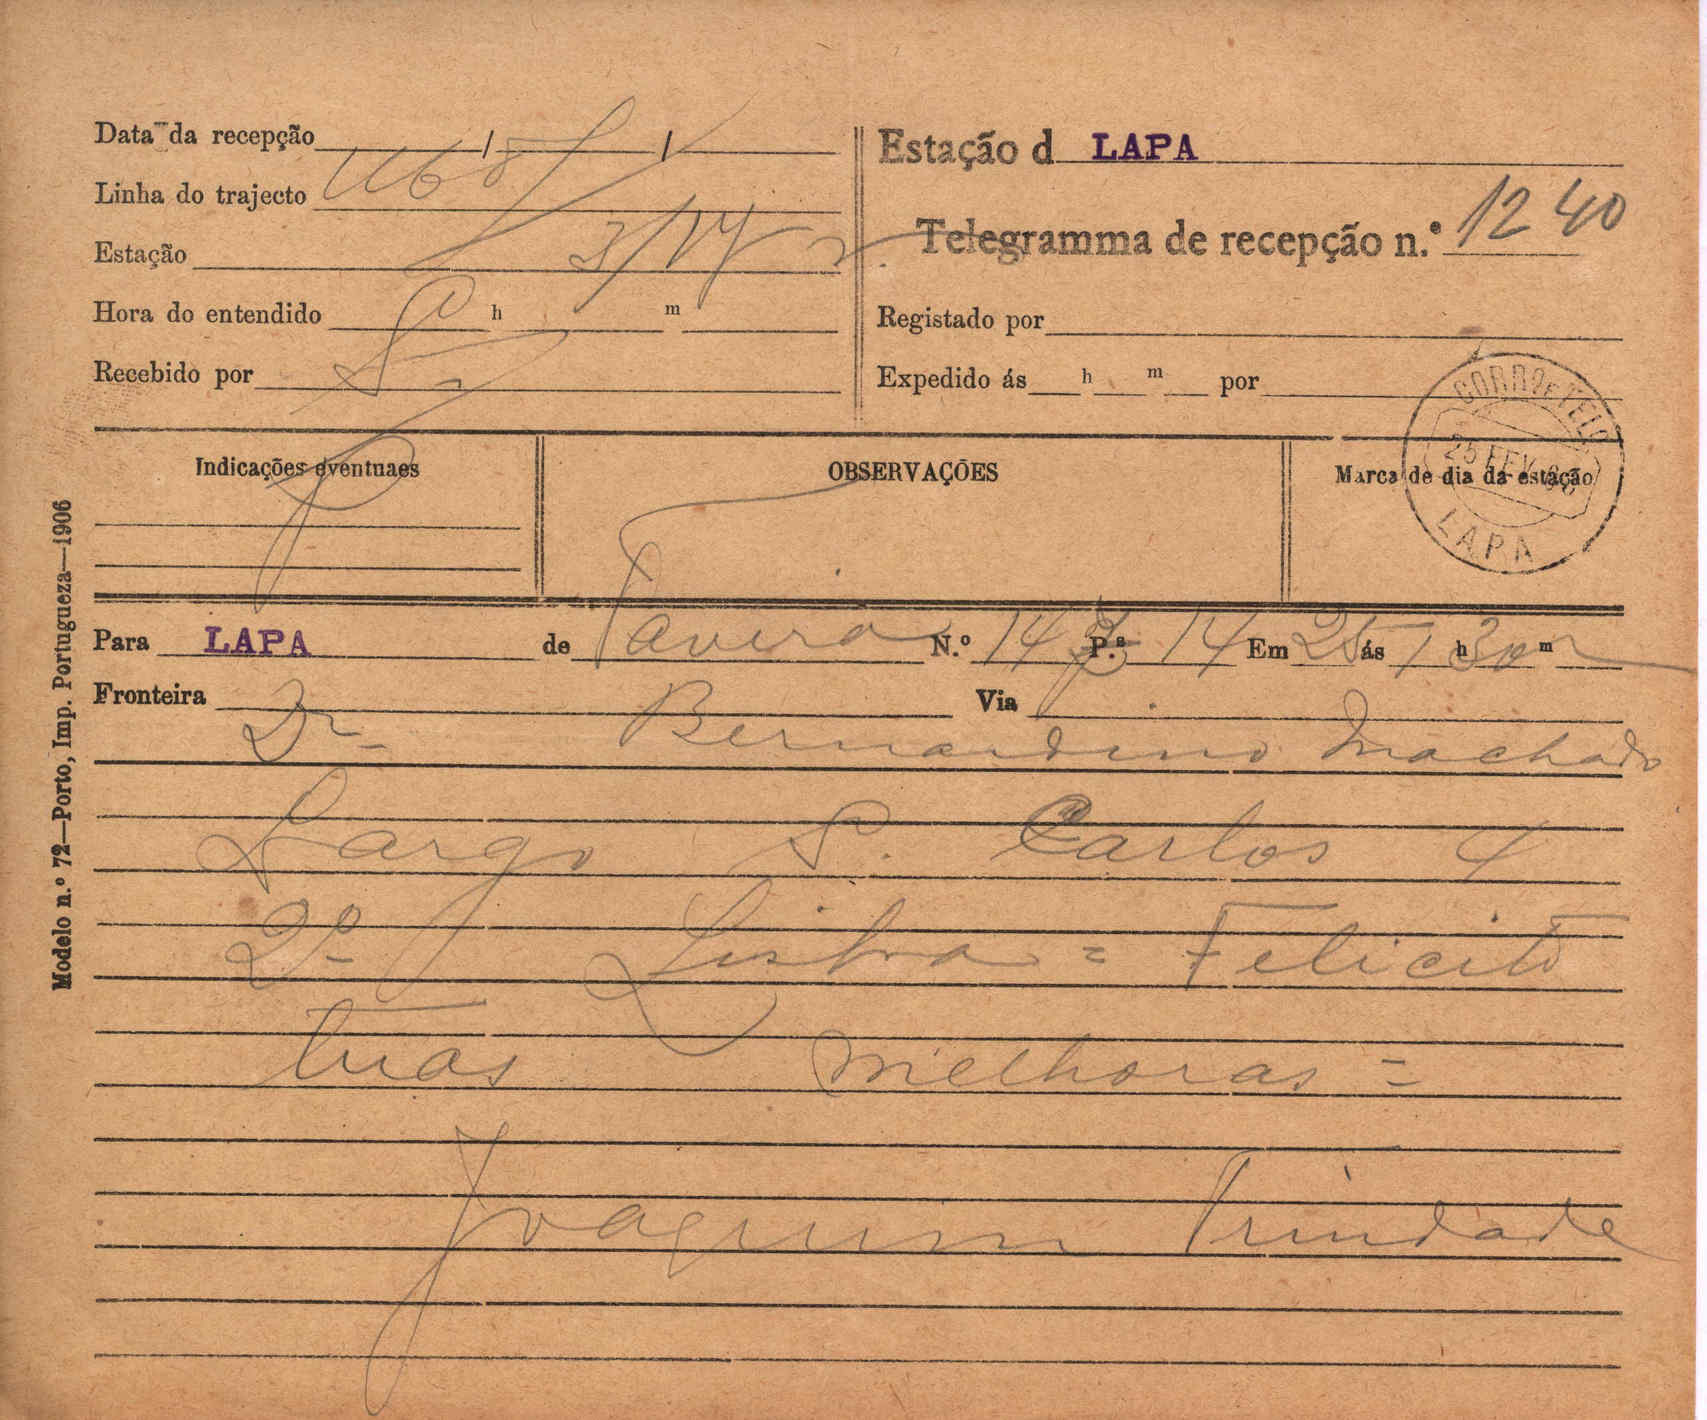 Data da recepção / /
Linha do trajecto
Estação 3/14
Hora do entendido h m
Recebido por
Estação d LAPA
Telegramma de recepção n.º 1240
Registado por
Expedido ás h m por
Indicações eventuaes
OBSERVAÇÕES
Marca de dia da estação
CORRO E TELO
25 FEV
LAPA
Para LAPA de Taveiro N.º 14 P.as 14 Em 25 ás 1 h 30 m
Fronteira Via
Dr. Bernardino Machado
Largo S. Carlos 4
2º Lisboa = Felicito
tuas melhoras =
Joaquim Trindade
Modelo n.º 72—Porto, Imp. Portugueza—1906